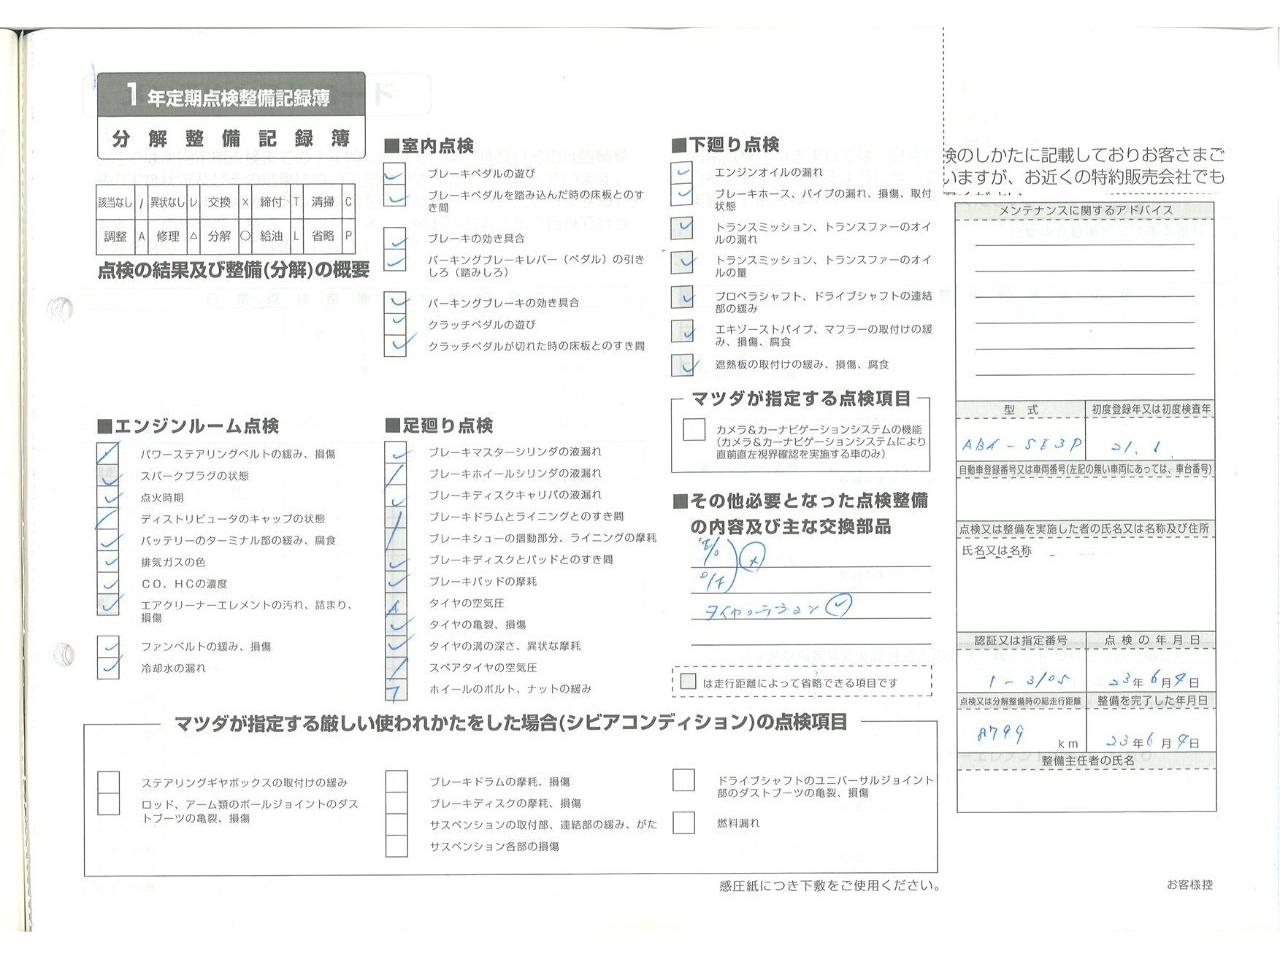 1年定期点検整備記録簿
分解整備記録簿
該当なし / 異状なし レ 交換 × 締付 T 清掃 C
調整 A 修理 △ 分解 ○ 給油 L 省略 P
点検の結果及び整備(分解)の概要
■室内点検
ブレーキペダルの遊び
ブレーキペダルを踏み込んだ時の床板とのす
き間
ブレーキの効き具合
パーキングブレーキレバー（ペダル）の引き
しろ（踏みしろ）
パーキングブレーキの効き具合
クラッチペダルの遊び
クラッチペダルが切れた時の床板とのすき間
■下廻り点検
エンジンオイルの漏れ
ブレーキホース、パイプの漏れ、損傷、取付
状態
トランスミッション、トランスファーのオイ
ルの漏れ
トランスミッション、トランスファーのオイ
ルの量
プロペラシャフト、ドライブシャフトの連結
部の緩み
エキゾーストパイプ、マフラーの取付けの緩
み、損傷、腐食
遮熱板の取付けの緩み、損傷、腐食
マツダが指定する点検項目
カメラ&カーナビゲーションシステムの機能
(カメラ&カーナビゲーションシステムにより
直前直左視界確認を実施する車のみ)
■エンジンルーム点検
パワーステアリングベルトの緩み、損傷
スパークプラグの状態
点火時期
ディストリビュータのキャップの状態
バッテリーのターミナル部の緩み、腐食
排気ガスの色
CO、HCの濃度
エアクリーナーエレメントの汚れ、詰まり、
損傷
ファンベルトの緩み、損傷
冷却水の漏れ
■足廻り点検
ブレーキマスターシリンダの液漏れ
ブレーキホイールシリンダの液漏れ
ブレーキディスクキャリパの液漏れ
ブレーキドラムとライニングとのすき間
ブレーキシューの摺動部分、ライニングの摩耗
ブレーキディスクとパッドとのすき間
ブレーキパッドの摩耗
タイヤの空気圧
タイヤの亀裂、損傷
タイヤの溝の深さ、異状な摩耗
スペアタイヤの空気圧
ホイールのボルト、ナットの緩み
■その他必要となった点検整備
の内容及び主な交換部品
E/O
O/F ×
タイヤローテーション レ
は走行距離によって省略できる項目です
マツダが指定する厳しい使われかたをした場合(シビアコンディション)の点検項目
ステアリングギヤボックスの取付けの緩み
ロッド、アーム類のボールジョイントのダス
トブーツの亀裂、損傷
ブレーキドラムの摩耗、損傷
ブレーキディスクの摩耗、損傷
サスペンションの取付部、連結部の緩み、がた
サスペンション各部の損傷
ドライブシャフトのユニバーサルジョイント
部のダストブーツの亀裂、損傷
燃料漏れ
感圧紙につき下敷をご使用ください。
検のしかたに記載しておりお客さまご
いますが、お近くの特約販売会社でも
メンテナンスに関するアドバイス
型式 初度登録年又は初度検査年
ABA-SE3P 21.1
自動車登録番号又は車両番号(左記の無い車両にあっては、車台番号)
点検又は整備を実施した者の氏名又は名称及び住所
氏名又は名称
認証又は指定番号 点検の年月日
1-3105 23年6月9日
点検又は分解整備時の総走行距離 整備を完了した年月日
8799 km 23年6月9日
整備主任者の氏名
お客様控